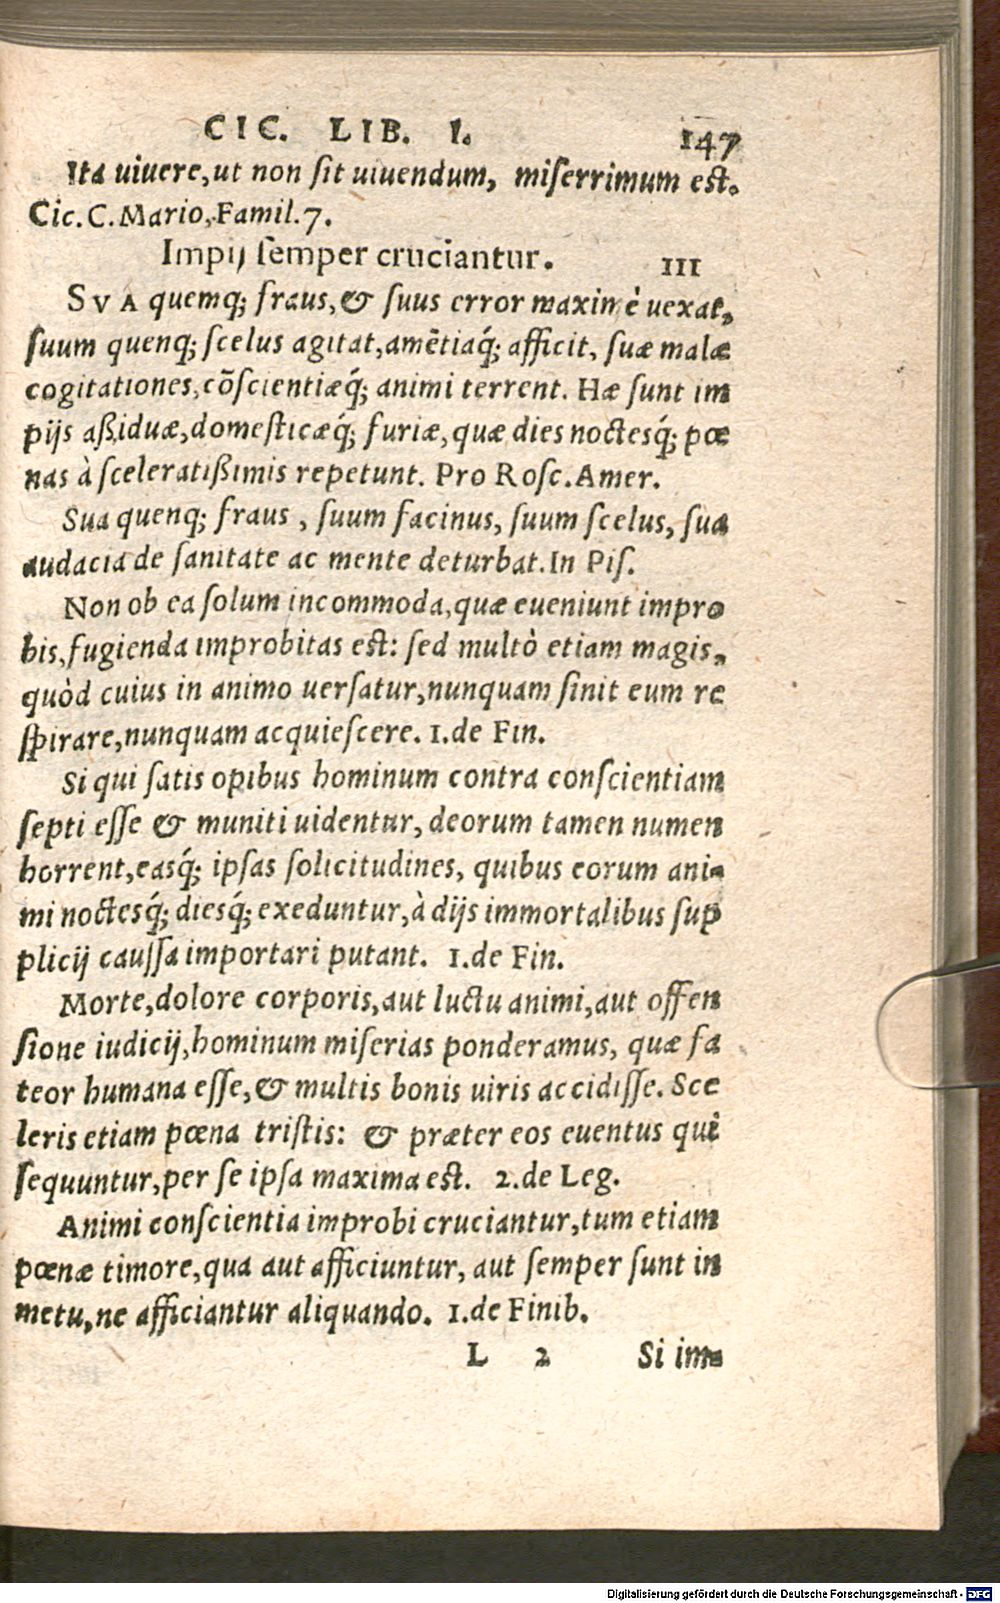 CIC. LIB. I. 147
Ita uiuere, ut non sit uiuendum, miserrimum est.
Cic. C. Mario, Famil. 7.
Impij semper cruciantur. III
SVA quemq; fraus, & suus error maximè uexat,
suum quenq; scelus agitat, amẽtiaq́; afficit, suæ malæ
cogitationes, cõscientiæq́; animi terrent. Hæ sunt im
pijs aßiduæ, domesticæq́; furiæ, quæ dies noctesq́; pœ
nas à sceleratißimis repetunt. Pro Rosc. Amer.
Sua quenq; fraus, suum facinus, suum scelus, sua
audacia de sanitate ac mente deturbat. In Pis.
Non ob ea solum incommoda, quæ eueniunt impro
bis, fugienda improbitas est: sed multò etiam magis,
quòd cuius in animo uersatur, nunquam sinit eum re
spirare, nunquam acquiescere. 1. de Fin.
Si qui satis opibus hominum contra conscientiam
septi esse & muniti uidentur, deorum tamen numen
horrent, easq́; ipsas solicitudines, quibus eorum ani-
mi noctesq́; diesq́; exeduntur, à dijs immortalibus sup
plicij caussa importari putant. 1. de Fin.
Morte, dolore corporis, aut luctu animi, aut offen
sione iudicij, hominum miserias ponderamus, quæ fa
teor humana esse, & multis bonis uiris accidisse. Sce
leris etiam pœna tristis: & præter eos euentus qui
sequuntur, per se ipsa maxima est. 2. de Leg.
Animi conscientia improbi cruciantur, tum etiam
pœnæ timore, qua aut afficiuntur, aut semper sunt in
metu, ne afficiantur aliquando. 1. de Finib.
L 2 Si im-
Digitalisierung gefördert durch die Deutsche Forschungsgemeinschaft - DFG